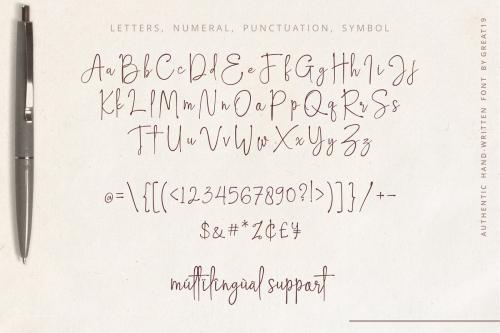 LETTERS, NUMERAL, PUNCTUATION, SYMBOL
AaBbCcDdEeFfGgHhIiJj
KkLlMmNnOaPpQqRrSs
TtUuVvWwXxYyZz
@=\{[(<1234567890?!>)]}/+-
$&#*Z¢£¥
múltílíngùal support
AUTHENTIC HAND-WRITTEN FONT BY GREAT19